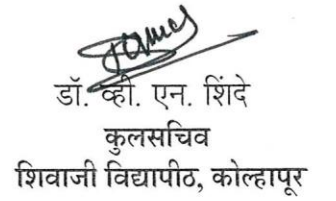 डॉ. व्ही. एन. शिंदे
कुलसचिव
शिवाजी विद्यापीठ, कोल्हापूर